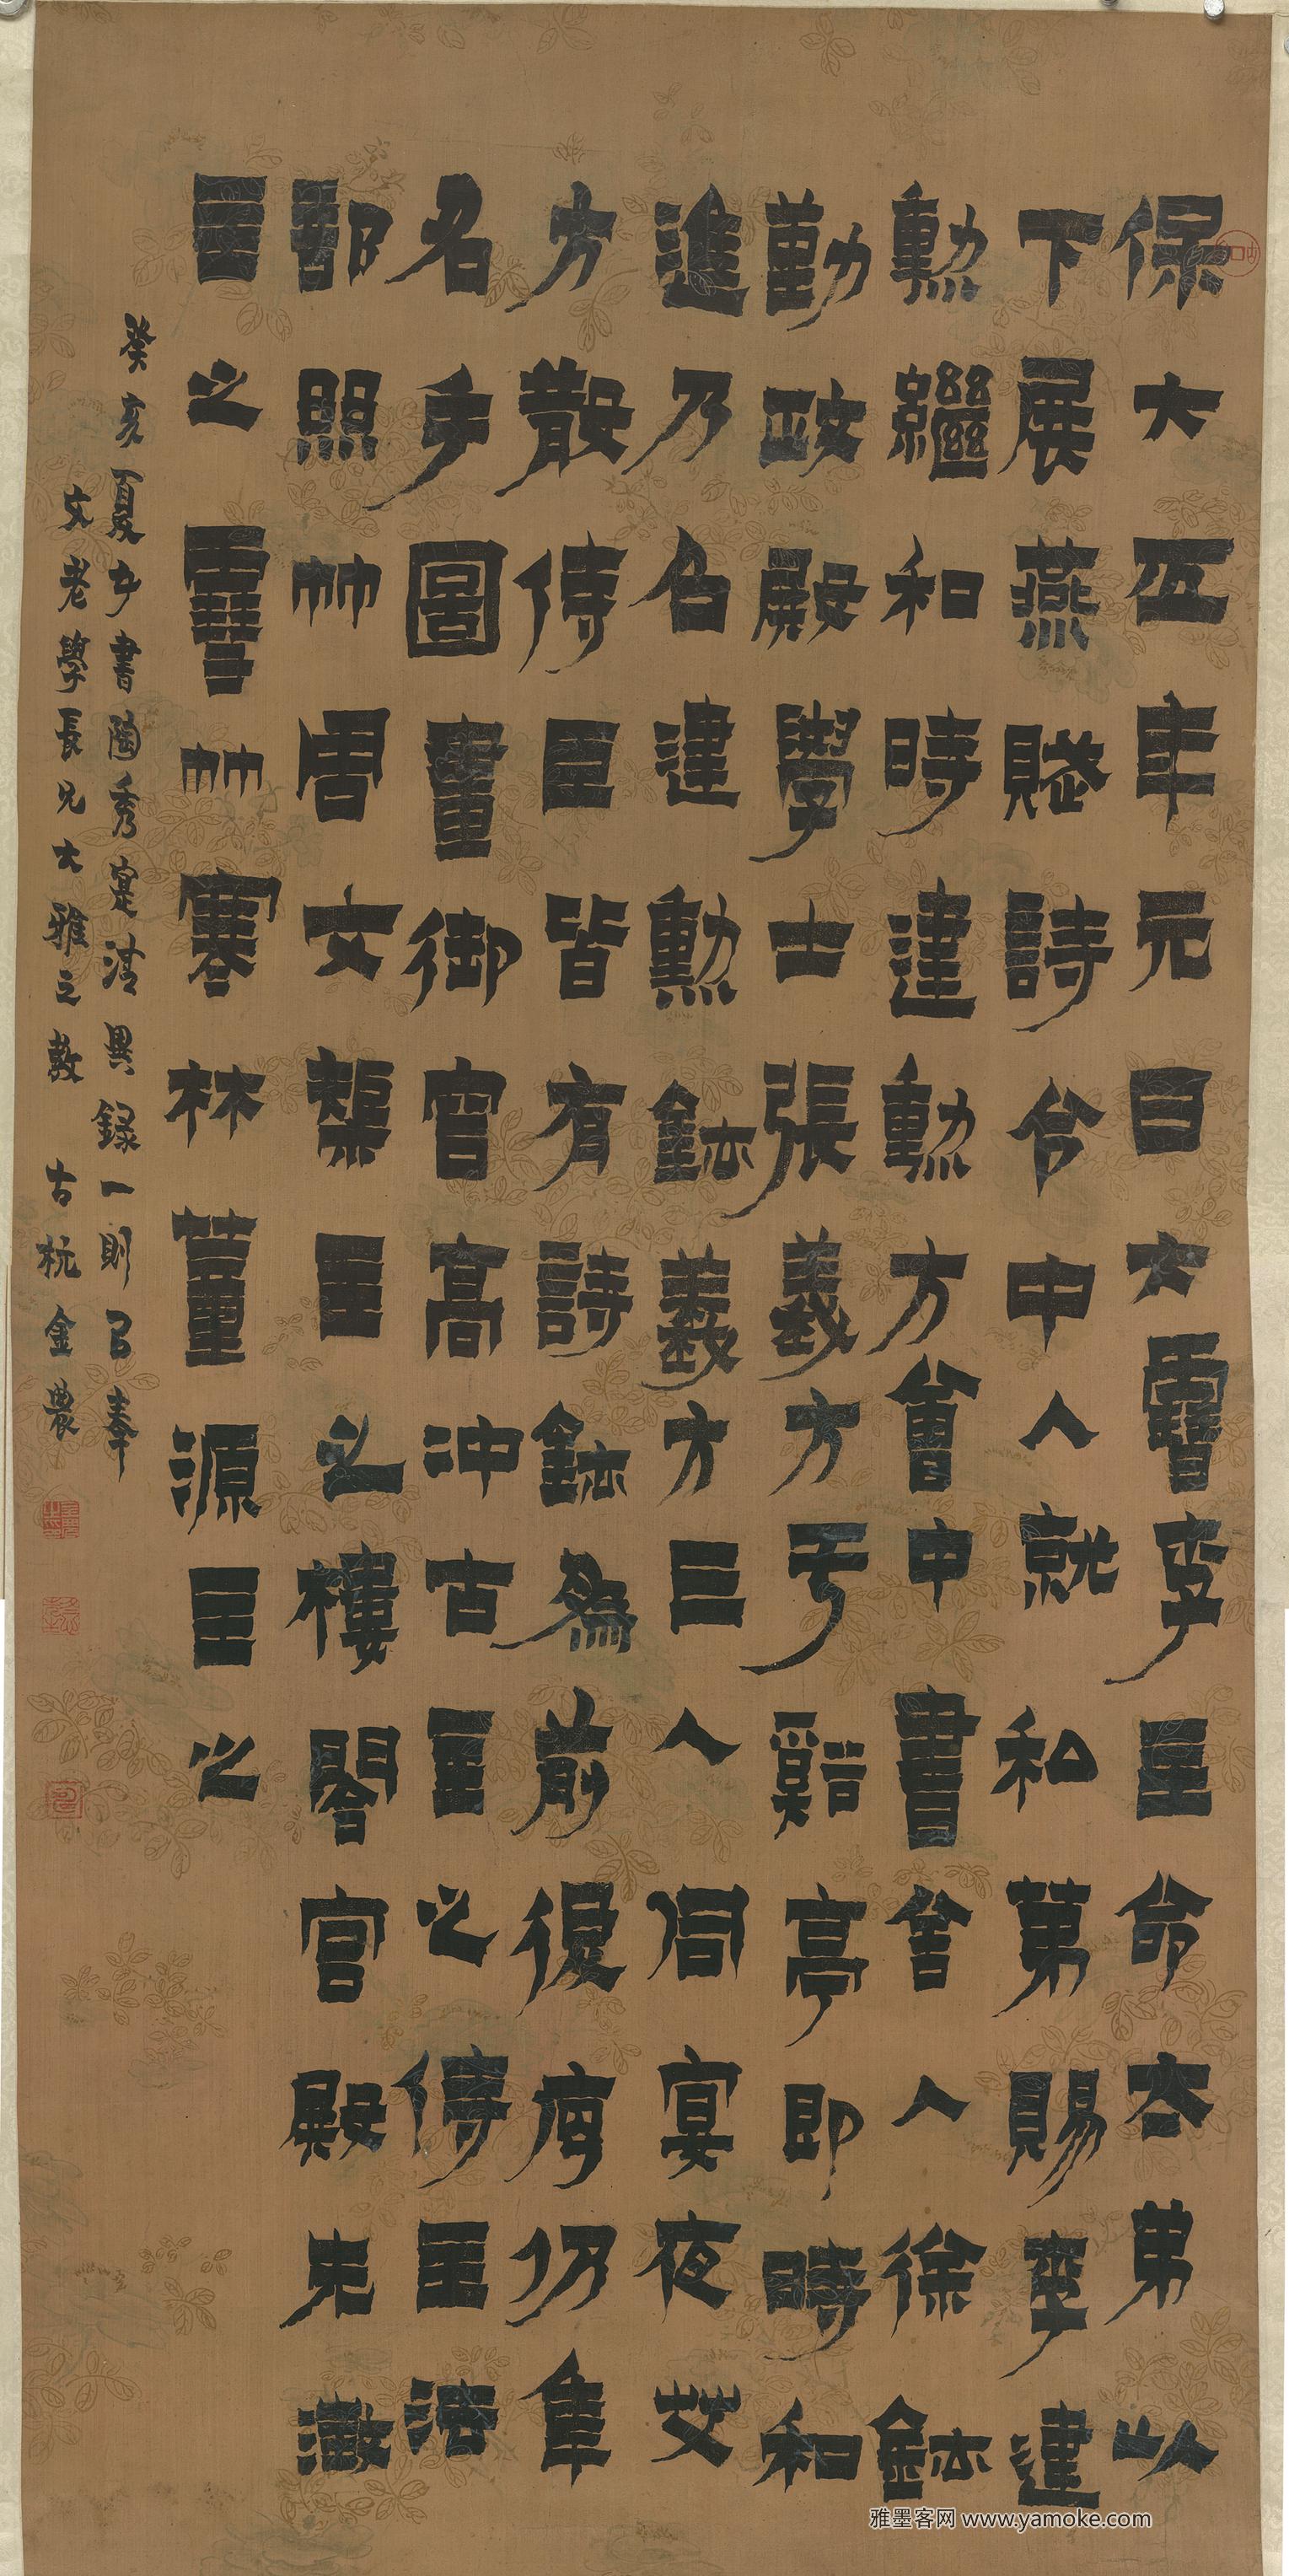 保大五年元日大雪李主命太弟以
下展燕賦詩令中人就私第賜李建
勲繼和時建勲方會中書舍人徐鉉
勤政殿學士張義方于谿亭即時和
進乃召建勲鉉義方三人同宴夜艾
方散侍臣皆有詩鉉為前後序仍集
名手圖畫御容高冲古主之侍主法
部照竹周文榘主之樓閣宮殿朱澂
主之雪竹寒林董源主之
癸亥夏五書陶秀寔清異錄一則㠯奉
文老學長兄大雅之教 古杭金農
雅墨客网 www.yamoke.com